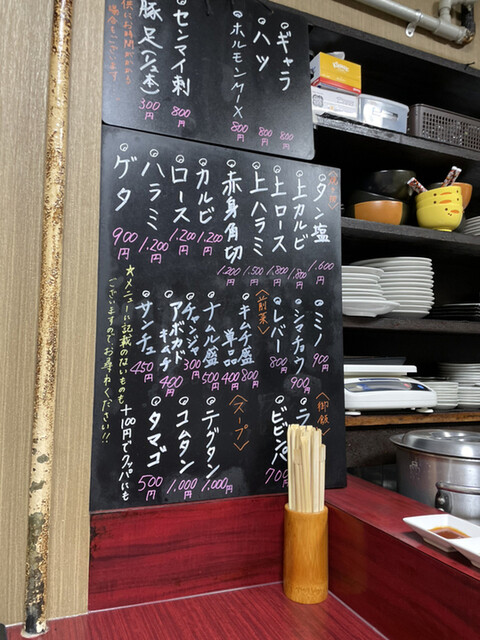 ギャラ 800円
ハツ 800円
ホルモンケーメ 800円
センマイ刺 800円
豚足(1/2本) 300円
タン塩 1.600円
上カルビ 1.800円
上ロース 1.800円
上ハラミ 1.500円
赤身角切 1.200円
カルビ 1.200円
ロース 1.200円
ハラミ 1.200円
ゲタ 900円
ミノ 900円
シマチョウ 900円
レバー 800円
〈前菜〉
キムチ盛 800円
単品 400円
ナムル盛 500円
チャンジャ 300円
アボカドキムチ 400円
サンチュ 450円
〈御飯〉
ビビンバ 700円
〈スープ〉
テグタン 1,000円
コムタン 1,000円
タマゴ 500円
+100円でクッパにも
★メニューに記載のないものも
ございますので、お尋ねください!!